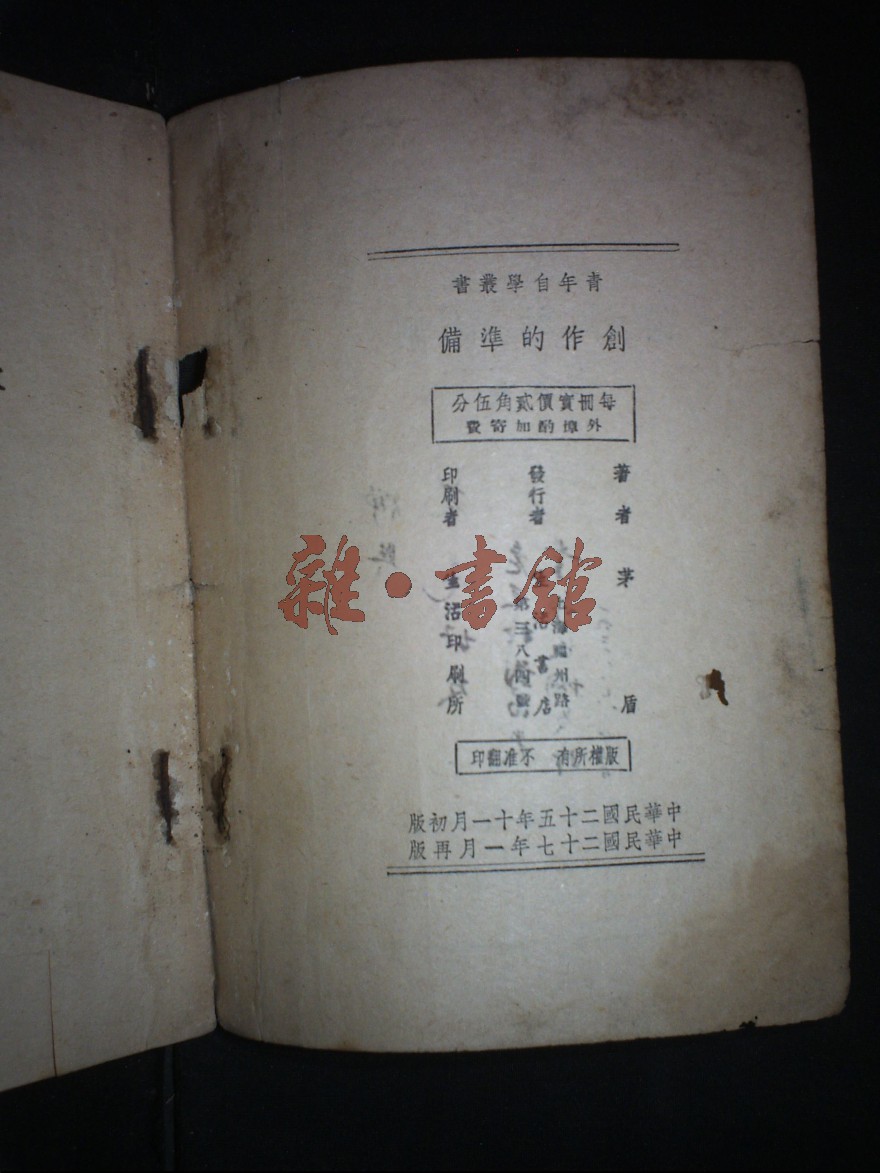 青年自學叢書
創作的準備
每冊實價貳角伍分
外埠酌加寄費
著者 茅盾
發行者 生活書店
上海福州路
第三八四號
印刷者 生活印刷所
版權所有 不准翻印
中華民國二十五年十一月初版
中華民國二十七年一月再版
雜·書館